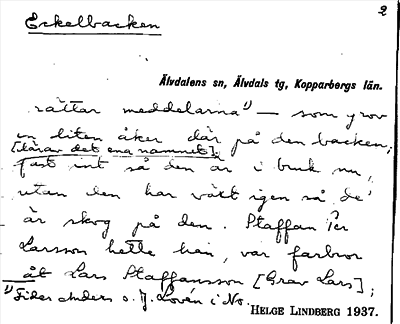 2
Eskelbacken
Älvdalens sn, Älvdals tg, Kopparbergs län.
rättar meddelarna ¹⁾ — som grov
en liten åker där på den backen;
[därav det ena namnet];
fast int så den är i bruk nu,
utan den har växt igen så de'
är skog på den. Staffan Per
Larsson hette han, var farbror
åt Lars Staffansson [Grav Lars];
¹⁾ Fider Anders o. J. Lovén i No.
HELGE LINDBERG 1937.